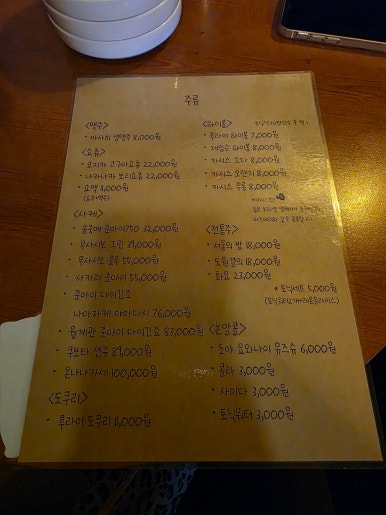 주류
<맥주>
• 아사히 생맥주 8,000원
<요쥬>
• 코지카 고구마쇼츄 22,000원
• 나카나카 보리쇼츄 22,000원
• 요맥 9,000원
<사케>
• 준마이750 32,000원
• 무사시보 그린 39,000원
• 무사시보 블루 55,000원
• 사카리 준마이 55,000원
• 준마이 다이긴죠
나마자케 야마다시 76,000원
• 월계관 준마이 다이긴죠 83,000원
• 쿠보타 센쥬 89,000원
• 온나나카세 100,000원
<도쿠리>
• 후라이 도쿠리 11,000원
<하이볼>
• 후라이 하이볼 7,000원
• 제임슨 하이볼 8,000원
• 카시스 소다 8,000원
• 카시스 오렌지 8,000원
• 카시스 우롱 8,000원
<전통주>
• 서울의 밤 18,000원
• 도원결의 18,000원
• 화요 23,000원
* 토닉세트 5,000원
<논알콜>
• 쵸야 요와나이 유즈슈 6,000원
• 콜라 3,000원
• 사이다 3,000원
• 토닉워터 3,000원